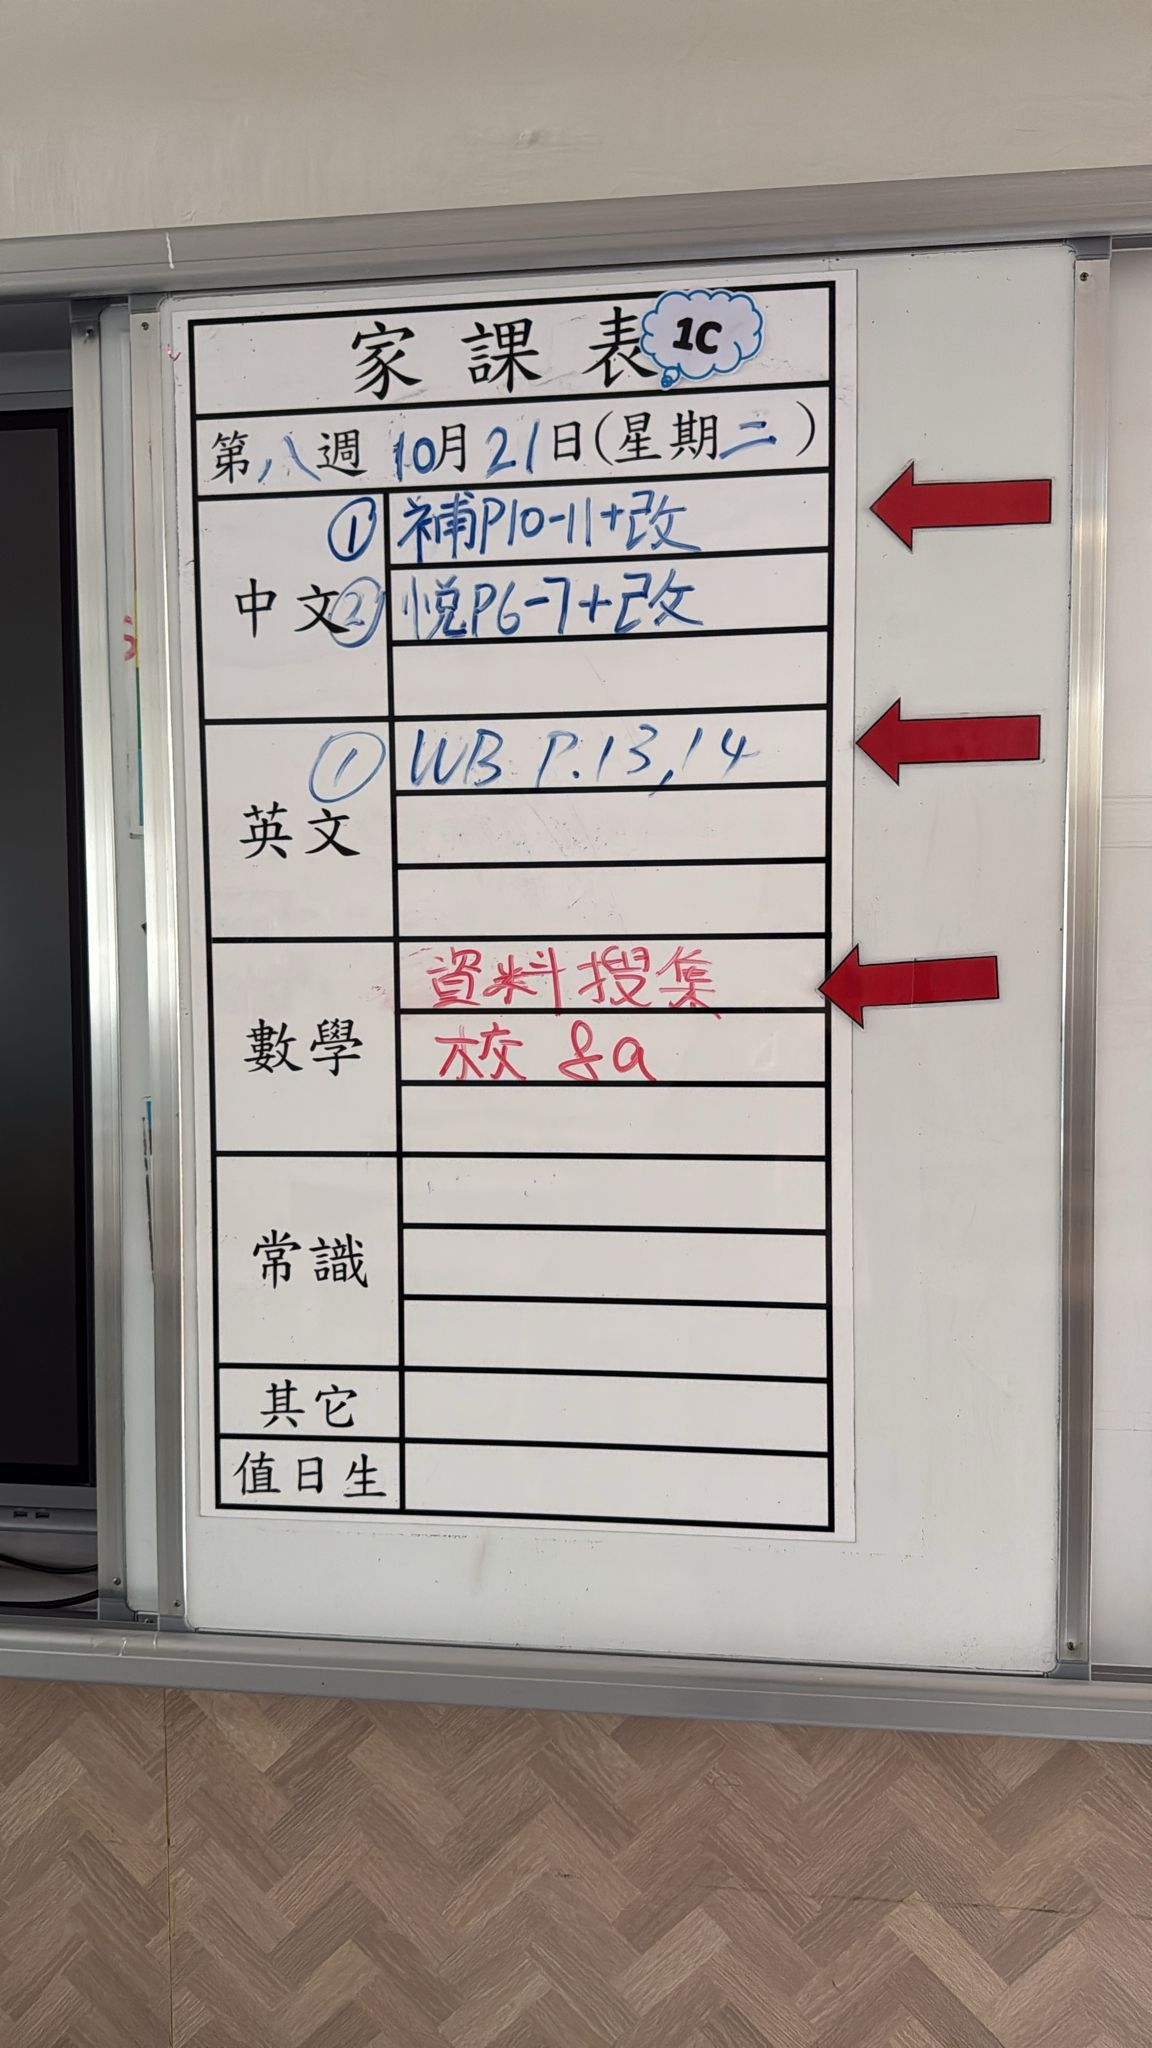 家課表 1C
第八週 10月21日(星期二)
中文
① 補P10-11+改
② 悅P6-7+改
英文
① WB P.13,14
數學
資料搜集
校 8a
常識
其它
值日生